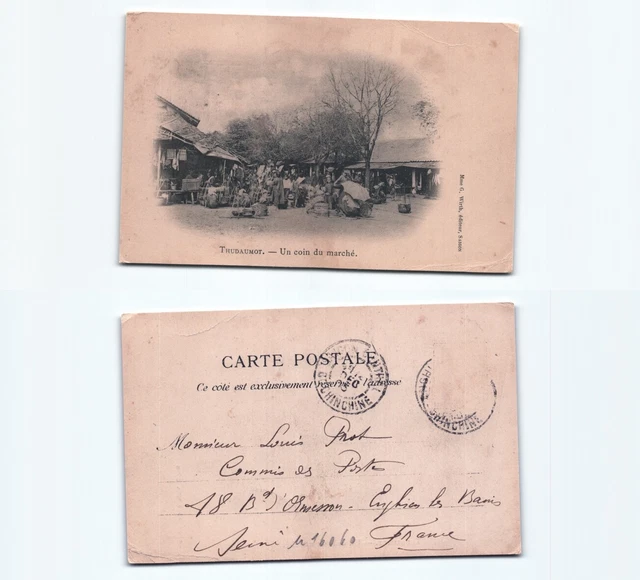 Thudaumot. — Un coin du marché.
Mme G. Wirth, éditeur, Saïgon
CARTE POSTALE
Ce côté est exclusivement réservé à l'adresse
CENTRAL
DEC
COCHINCHINE
COCHINCHINE
Monsieur Louis
Commis des Postes
18 Bd d'Ormesson - Enghien les Bains
Seine
France